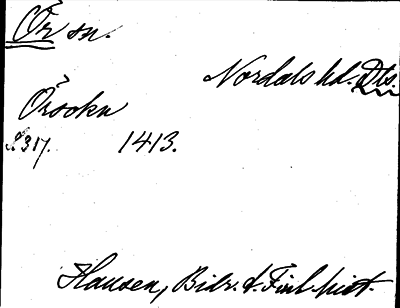 Ör sn.
Nordals hd. Dls.
Örsokn
s. 317. 1413.
Hausen, Bidr. t. Finl. hist.